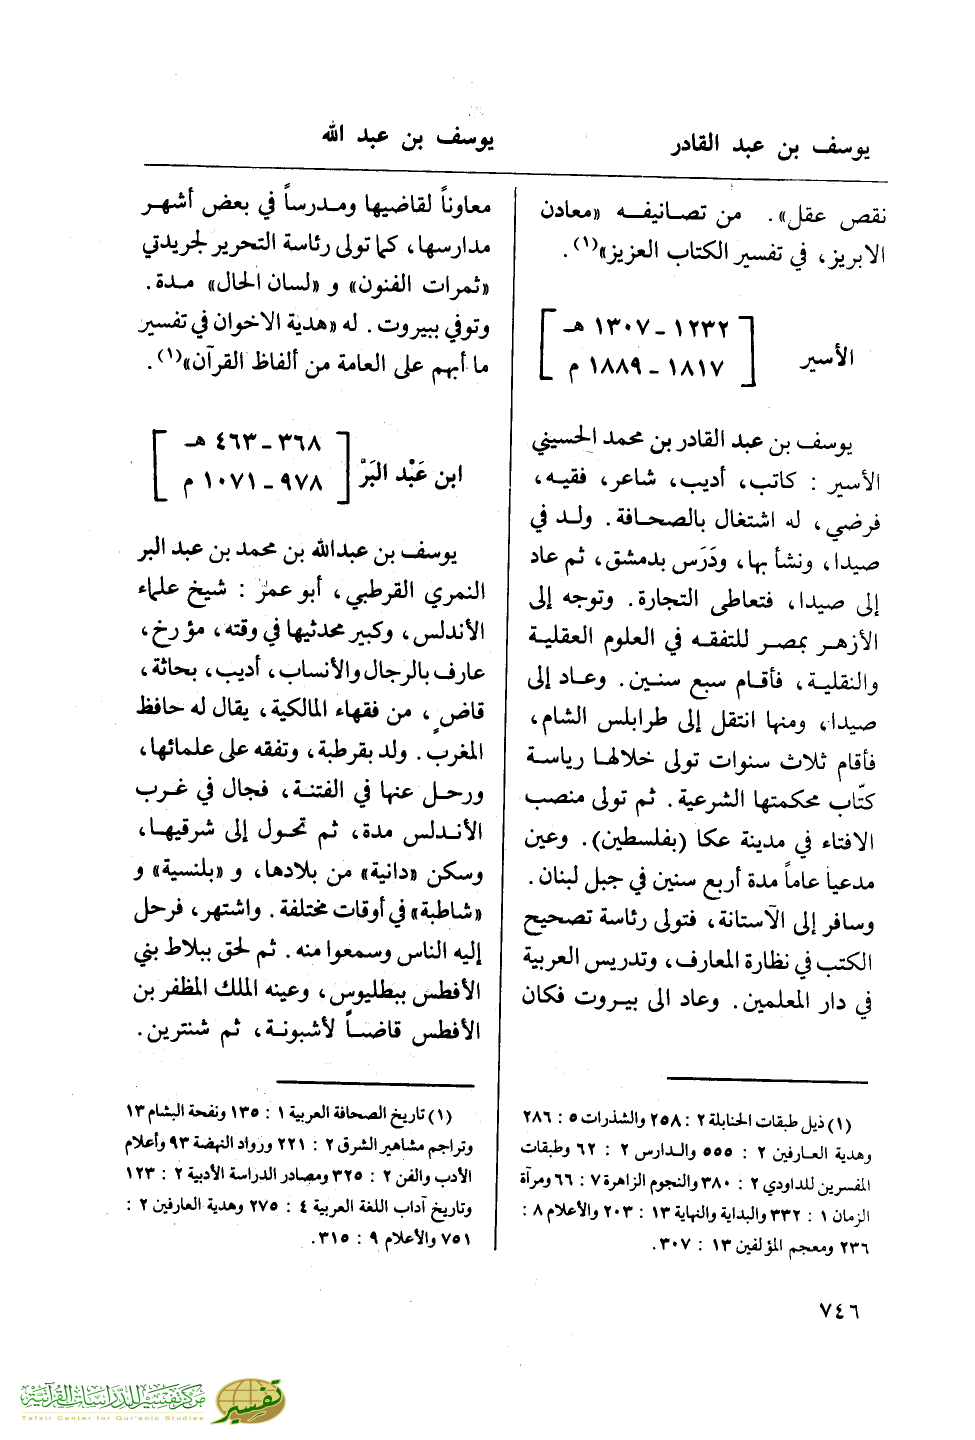 يوسف بن عبد القادر
يوسف بن عبد الله
نقص عقل». من تصانيفه «معادن
الابريز، في تفسير الكتاب العزيز»(١).
الأسير
١٢٣٢ - ١٣٠٧ هـ
١٨١٧ - ١٨٨٩ م
يوسف بن عبد القادر بن محمد الحسيني
الأسير : كاتب، أديب، شاعر، فقيه،
فرضي، له اشتغال بالصحافة. ولد في
صيدا، ونشأ بها، ودَرَس بدمشق، ثم عاد
إلى صيدا، فتعاطى التجارة. وتوجه إلى
الأزهر بمصر للتفقه في العلوم العقلية
والنقلية، فأقام سبع سنين. وعاد إلى
صيدا، ومنها انتقل إلى طرابلس الشام،
فأقام ثلاث سنوات تولى خلالها رياسة
كتّاب محكمتها الشرعية. ثم تولى منصب
الافتاء في مدينة عكا (بفلسطين). وعين
مدعياً عاماً مدة أربع سنين في جبل لبنان.
وسافر إلى الآستانة، فتولى رئاسة تصحيح
الكتب في نظارة المعارف، وتدريس العربية
في دار المعلمين. وعاد الى بيروت فكان
(١) ذيل طبقات الحنابلة ٢ : ٢٥٨ والشذرات ٥ : ٢٨٦
وهدية العارفين ٢ : ٥٥٥ والدارس ٢ : ٦٢ وطبقات
المفسرين للداودي ٢ : ٣٨٠ والنجوم الزاهرة ٧ : ٦٦ ومرآة
الزمان ١ : ٣٣٢ والبداية والنهاية ١٣ : ٢٠٣ والأعلام ٨ :
٢٣٦ ومعجم المؤلفين ١٣ : ٣٠٧.
معاوناً لقاضيها ومدرساً في بعض أشهر
مدارسها، كما تولى رئاسة التحرير لجريدتي
«ثمرات الفنون» و «لسان الحال» مدة.
وتوفي ببيروت. له «هدية الاخوان في تفسير
ما أبهم على العامة من ألفاظ القرآن»(١).
ابن عَبْد البَرْ
٣٦٨ - ٤٦٣ هـ
٩٧٨ - ١٠٧١ م
يوسف بن عبدالله بن محمد بن عبد البر
النمري القرطبي، أبو عمر : شيخ علماء
الأندلس، وكبير محدثيها في وقته، مؤرخ،
عارف بالرجال والأنساب، أديب، بحاثة،
قاضٍ، من فقهاء المالكية، يقال له حافظ
المغرب. ولد بقرطبة، وتفقه على علمائها،
ورحل عنها في الفتنة، فجال في غرب
الأندلس مدة، ثم تحول إلى شرقيها،
وسكن «دانية» من بلادها، و «بلنسية» و
«شاطبة» في أوقات مختلفة. واشتهر، فرحل
إليه الناس وسمعوا منه. ثم لحق ببلاط بني
الأفطس ببطليوس، وعينه الملك المظفر بن
الأفطس قاضياً لأشبونة، ثم شنترين.
(١) تاريخ الصحافة العربية ١ : ١٣٥ ونفحة البشام ١٣
وتراجم مشاهير الشرق ٢ : ٢٢١ ورواد النهضة ٩٣ وأعلام
الأدب والفن ٢ : ٣٢٥ ومصادر الدراسة الأدبية ٢ : ١٢٣
وتاريخ آداب اللغة العربية ٤ : ٢٧٥ وهدية العارفين ٢ :
٧٥١ والأعلام ٩ : ٣١٥.
٧٤٦
مركز تفسير للدراسات القرآنية
Tafsir Center for Qur'anic Studies
تفسير